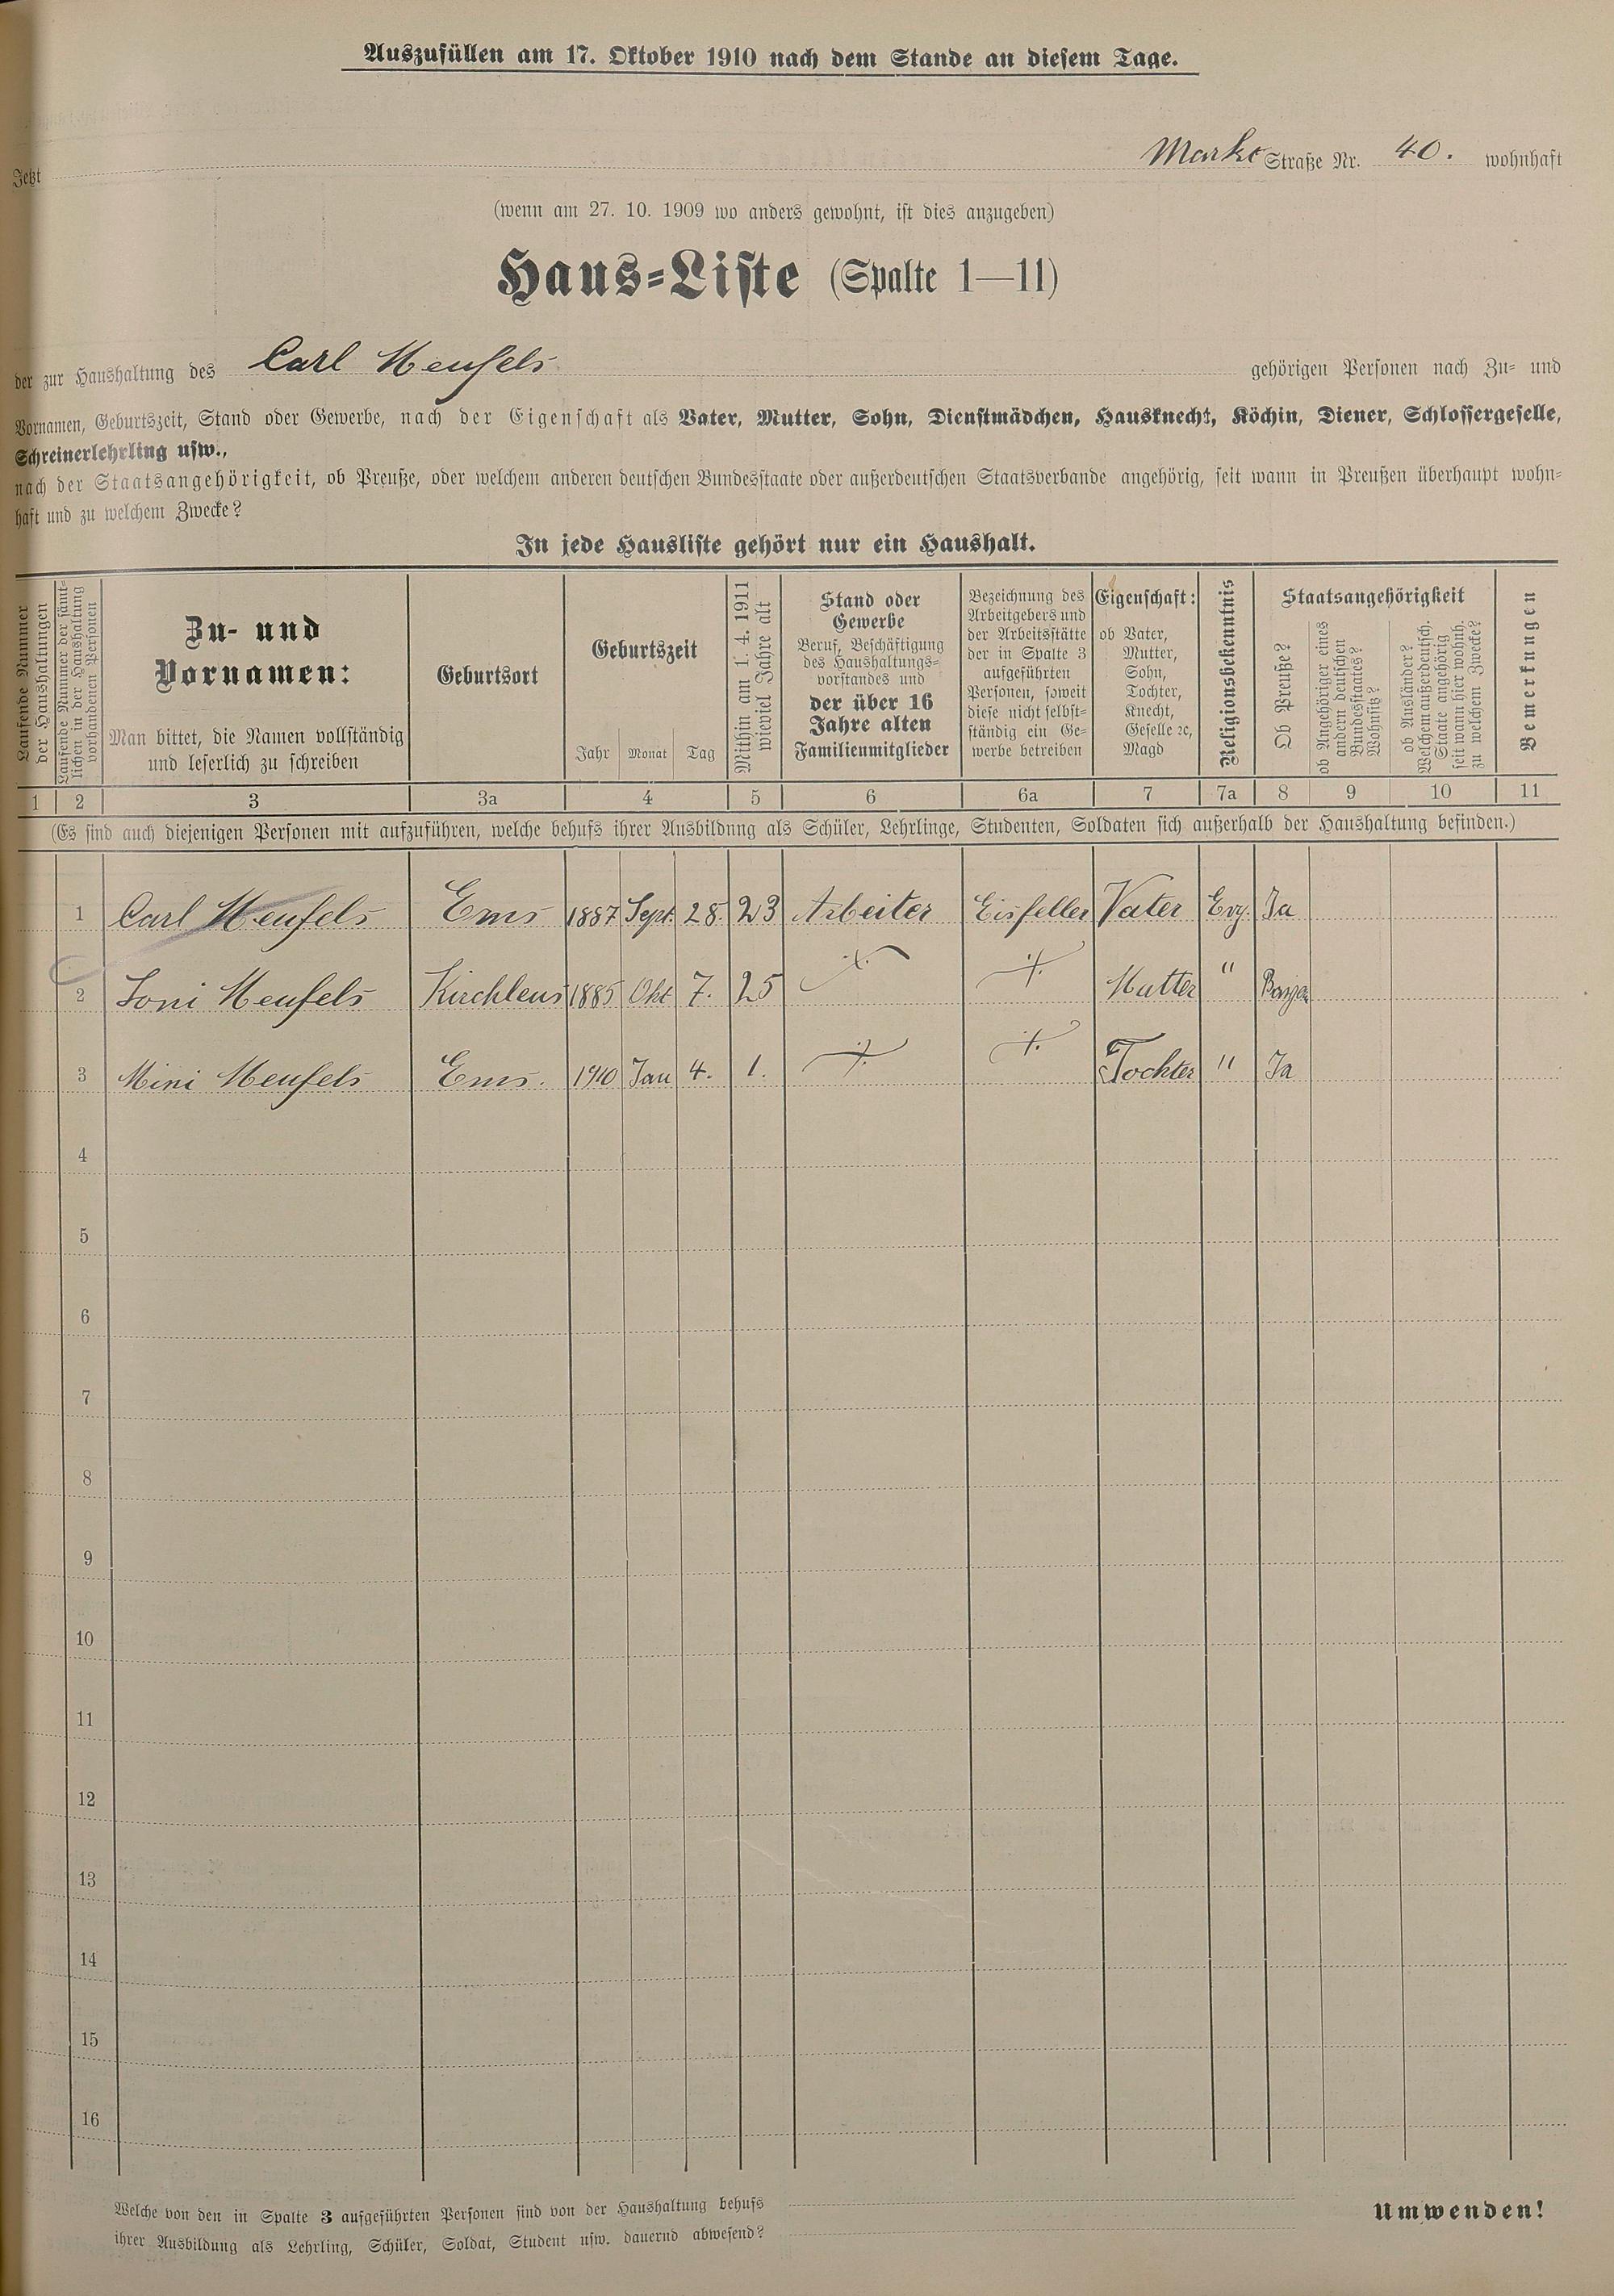 Auszufüllen am 17. Oktober 1910 nach dem Stande an diesem Tage.
Jetzt Markt Straße Nr. 40. wohnhaft
(wenn am 27. 10. 1909 wo anders gewohnt, ist dies anzugeben)
Haus=Liste (Spalte 1—11)
der zur Haushaltung des Carl Meufels gehörigen Personen nach Zu= und
Vornamen, Geburtszeit, Stand oder Gewerbe, nach der Eigenschaft als Vater, Mutter, Sohn, Dienstmädchen, Hausknecht, Köchin, Diener, Schlossergeselle,
Schreinerlehrling usw.,
nach der Staatsangehörigkeit, ob Preuße, oder welchem anderen deutschen Bundesstaate oder außerdeutschen Staatsverbande angehörig, seit wann in Preußen überhaupt wohn=
haft und zu welchem Zwecke?
In jede Hausliste gehört nur ein Haushalt.
Laufende Nummer
der Haushaltungen
Laufende Nummer der sämt=
lichen in der Haushaltung
vorhandenen Personen
Zu- und
Vornamen:
Man bittet, die Namen vollständig
und leserlich zu schreiben
Geburtsort
Geburtszeit
Jahr Monat Tag
Mithin am 1. 4. 1911
wieviel Jahre alt
Stand oder
Gewerbe
Beruf, Beschäftigung
des Haushaltungs=
vorstandes und
der über 16
Jahre alten
Familienmitglieder
Bezeichnung des
Arbeitgebers und
der Arbeitsstätte
der in Spalte 3
aufgeführten
Personen, soweit
diese nicht selbst=
ständig ein Ge=
werbe betreiben
Eigenschaft:
ob Vater,
Mutter,
Sohn,
Tochter,
Knecht,
Geselle ꝛc,
Magd
Religionsbekenntnis
Staatsangehörigkeit
Ob Preuße?
ob Angehöriger eines
andern deutschen
Bundesstaates?
Wohnsitz?
ob Ausländer?
Welchem außerdeutsch.
Staate angehörig
seit wann hier wohnh.
zu welchem Zwecke?
Bemerkungen
1 2 3 3a 4 5 6 6a 7 7a 8 9 10 11
(Es sind auch diejenigen Personen mit aufzuführen, welche behufs ihrer Ausbildnng als Schüler, Lehrlinge, Studenten, Soldaten sich außerhalb der Haushaltung befinden.)
1 Carl Meufels Ems 1887 Sept. 28. 23 Arbeiter Eisfeller Vater Evg. Ja
2 Toni Meufels Kirchleus 1885 Okt 7. 25 ./. ./. Mutter " Bayern
3 Mini Meufels Ems. 1910 Jan 4. 1. ./. ./. Tochter " Ja
4
5
6
7
8
9
10
11
12
13
14
15
16
Welche von den in Spalte 3 aufgeführten Personen sind von der Haushaltung behufs
ihrer Ausbildung als Lehrling, Schüler, Soldat, Student usw. dauernd abwesend?
Umwenden!